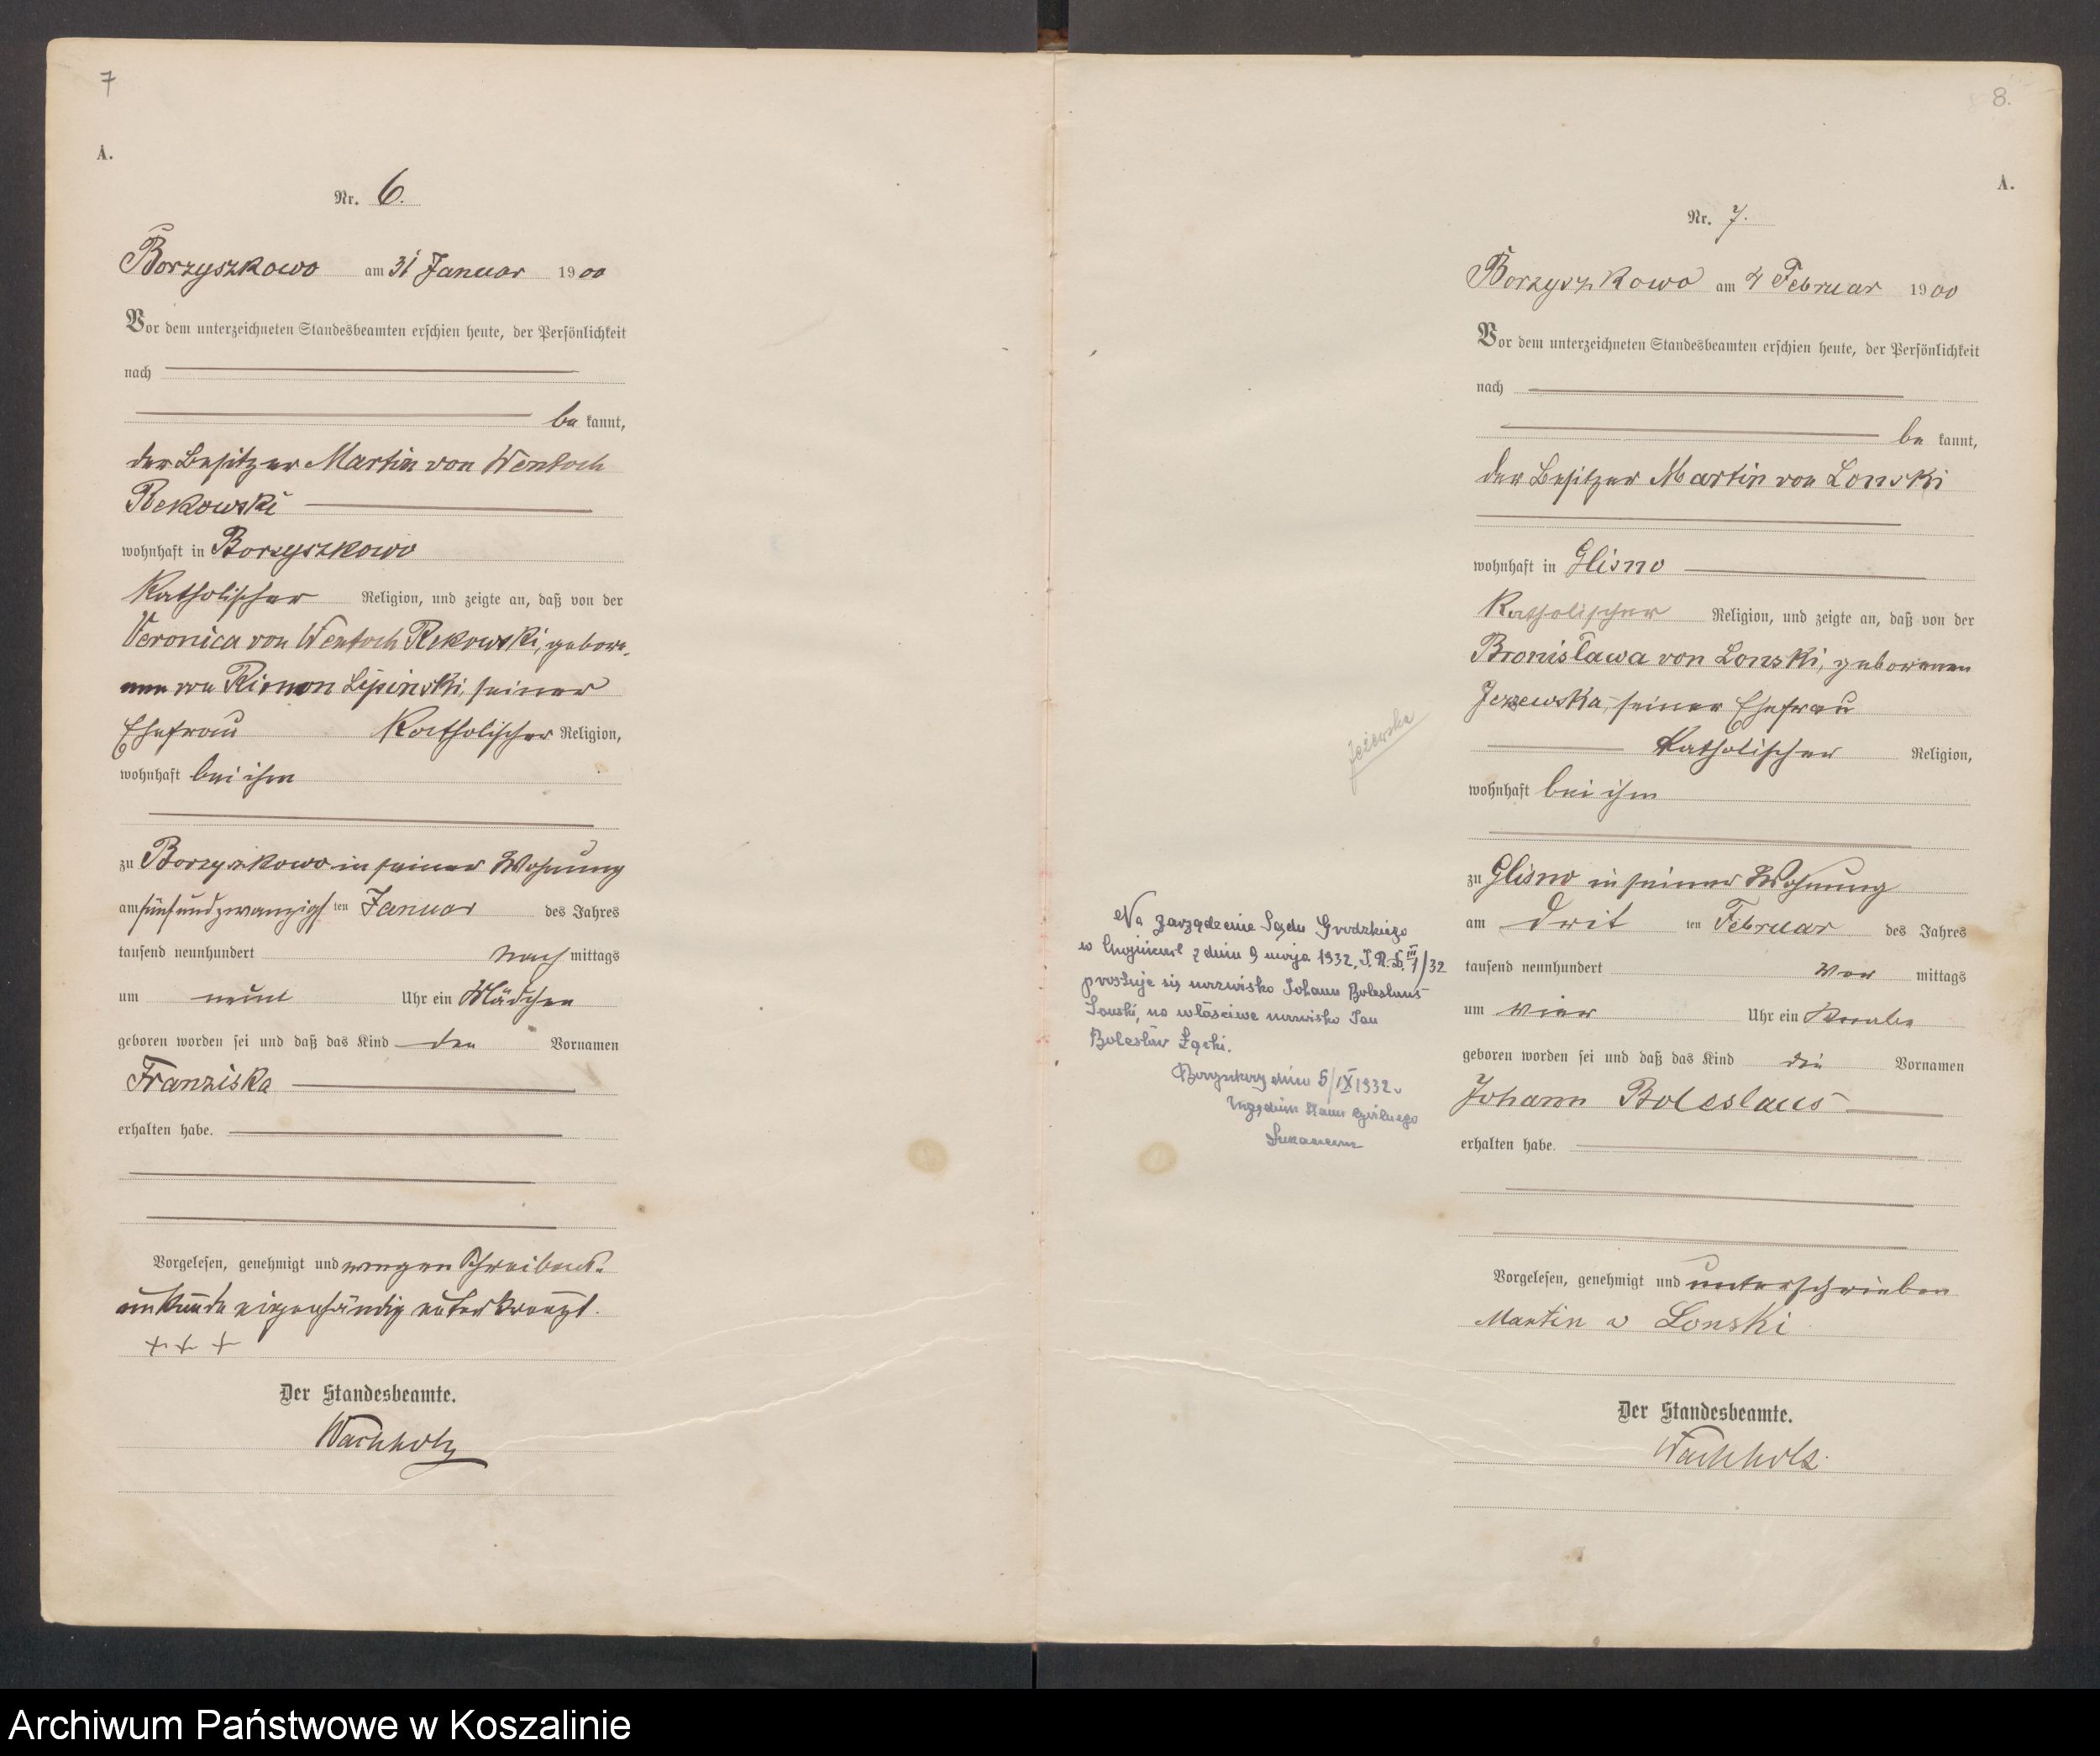 7
A.
Nr. 6.
Borzyszkowo am 31 Januar 1900
Vor dem unterzeichneten Standesbeamten erschien heute, der Persönlichkeit
nach
be kannt,
der Besitzer Martin von Wentoch
Rekowski
wohnhaft in Borzyszkowo
Katholischer Religion, und zeigte an, daß von der
Veronica von Wentoch Rekowski, gebore-
nen von Kimon Lipinski, seiner
Ehefrau Katholischer Religion,
wohnhaft bei ihm
zu Borzyszkowo in seiner Wohnung
am fünfundzwanzigs ten Januar des Jahres
tausend neunhundert Nach mittags
um neun Uhr ein Mädchen
geboren worden sei und daß das Kind den Vornamen
Franziska
erhalten habe.
Vorgelesen, genehmigt und wegen Schreibens-
unkunde eigenhändig unterkreuzt.
+ + +
Der Standesbeamte.
Wachholz
8.
A.
Nr. 7.
Borzyszkowo am 4 Februar 1900
Vor dem unterzeichneten Standesbeamten erschien heute, der Persönlichkeit
nach
be kannt,
der Besitzer Martin von Lonski
wohnhaft in Glisno
Katholischer Religion, und zeigte an, daß von der
Bronisława von Lonski, geborenen
Jezewska, seiner Ehefrau
Katholischer Religion,
wohnhaft bei ihm
zu Glisno in seiner Wohnung
am drit ten Februar des Jahres
tausend neunhundert Vor mittags
um vier Uhr ein Knabe
geboren worden sei und daß das Kind die Vornamen
Johann Boleslaus
erhalten habe.
Vorgelesen, genehmigt und unterschrieben
Martin v Lonski
Der Standesbeamte.
Wachholz.
Jeżewska
Na zarządzenie Sądu Grodzkiego
w z dnia 9 maja 1932,
prostuje się nazwisko Johann Boleslaus
Lonski, na właściwe nazwisko Jan
Bolesław Łącki.
Borzyszkowy dnia 5/IX 1932 r
Urzędnik Stanu Cywilnego
Archiwum Państwowe w Koszalinie